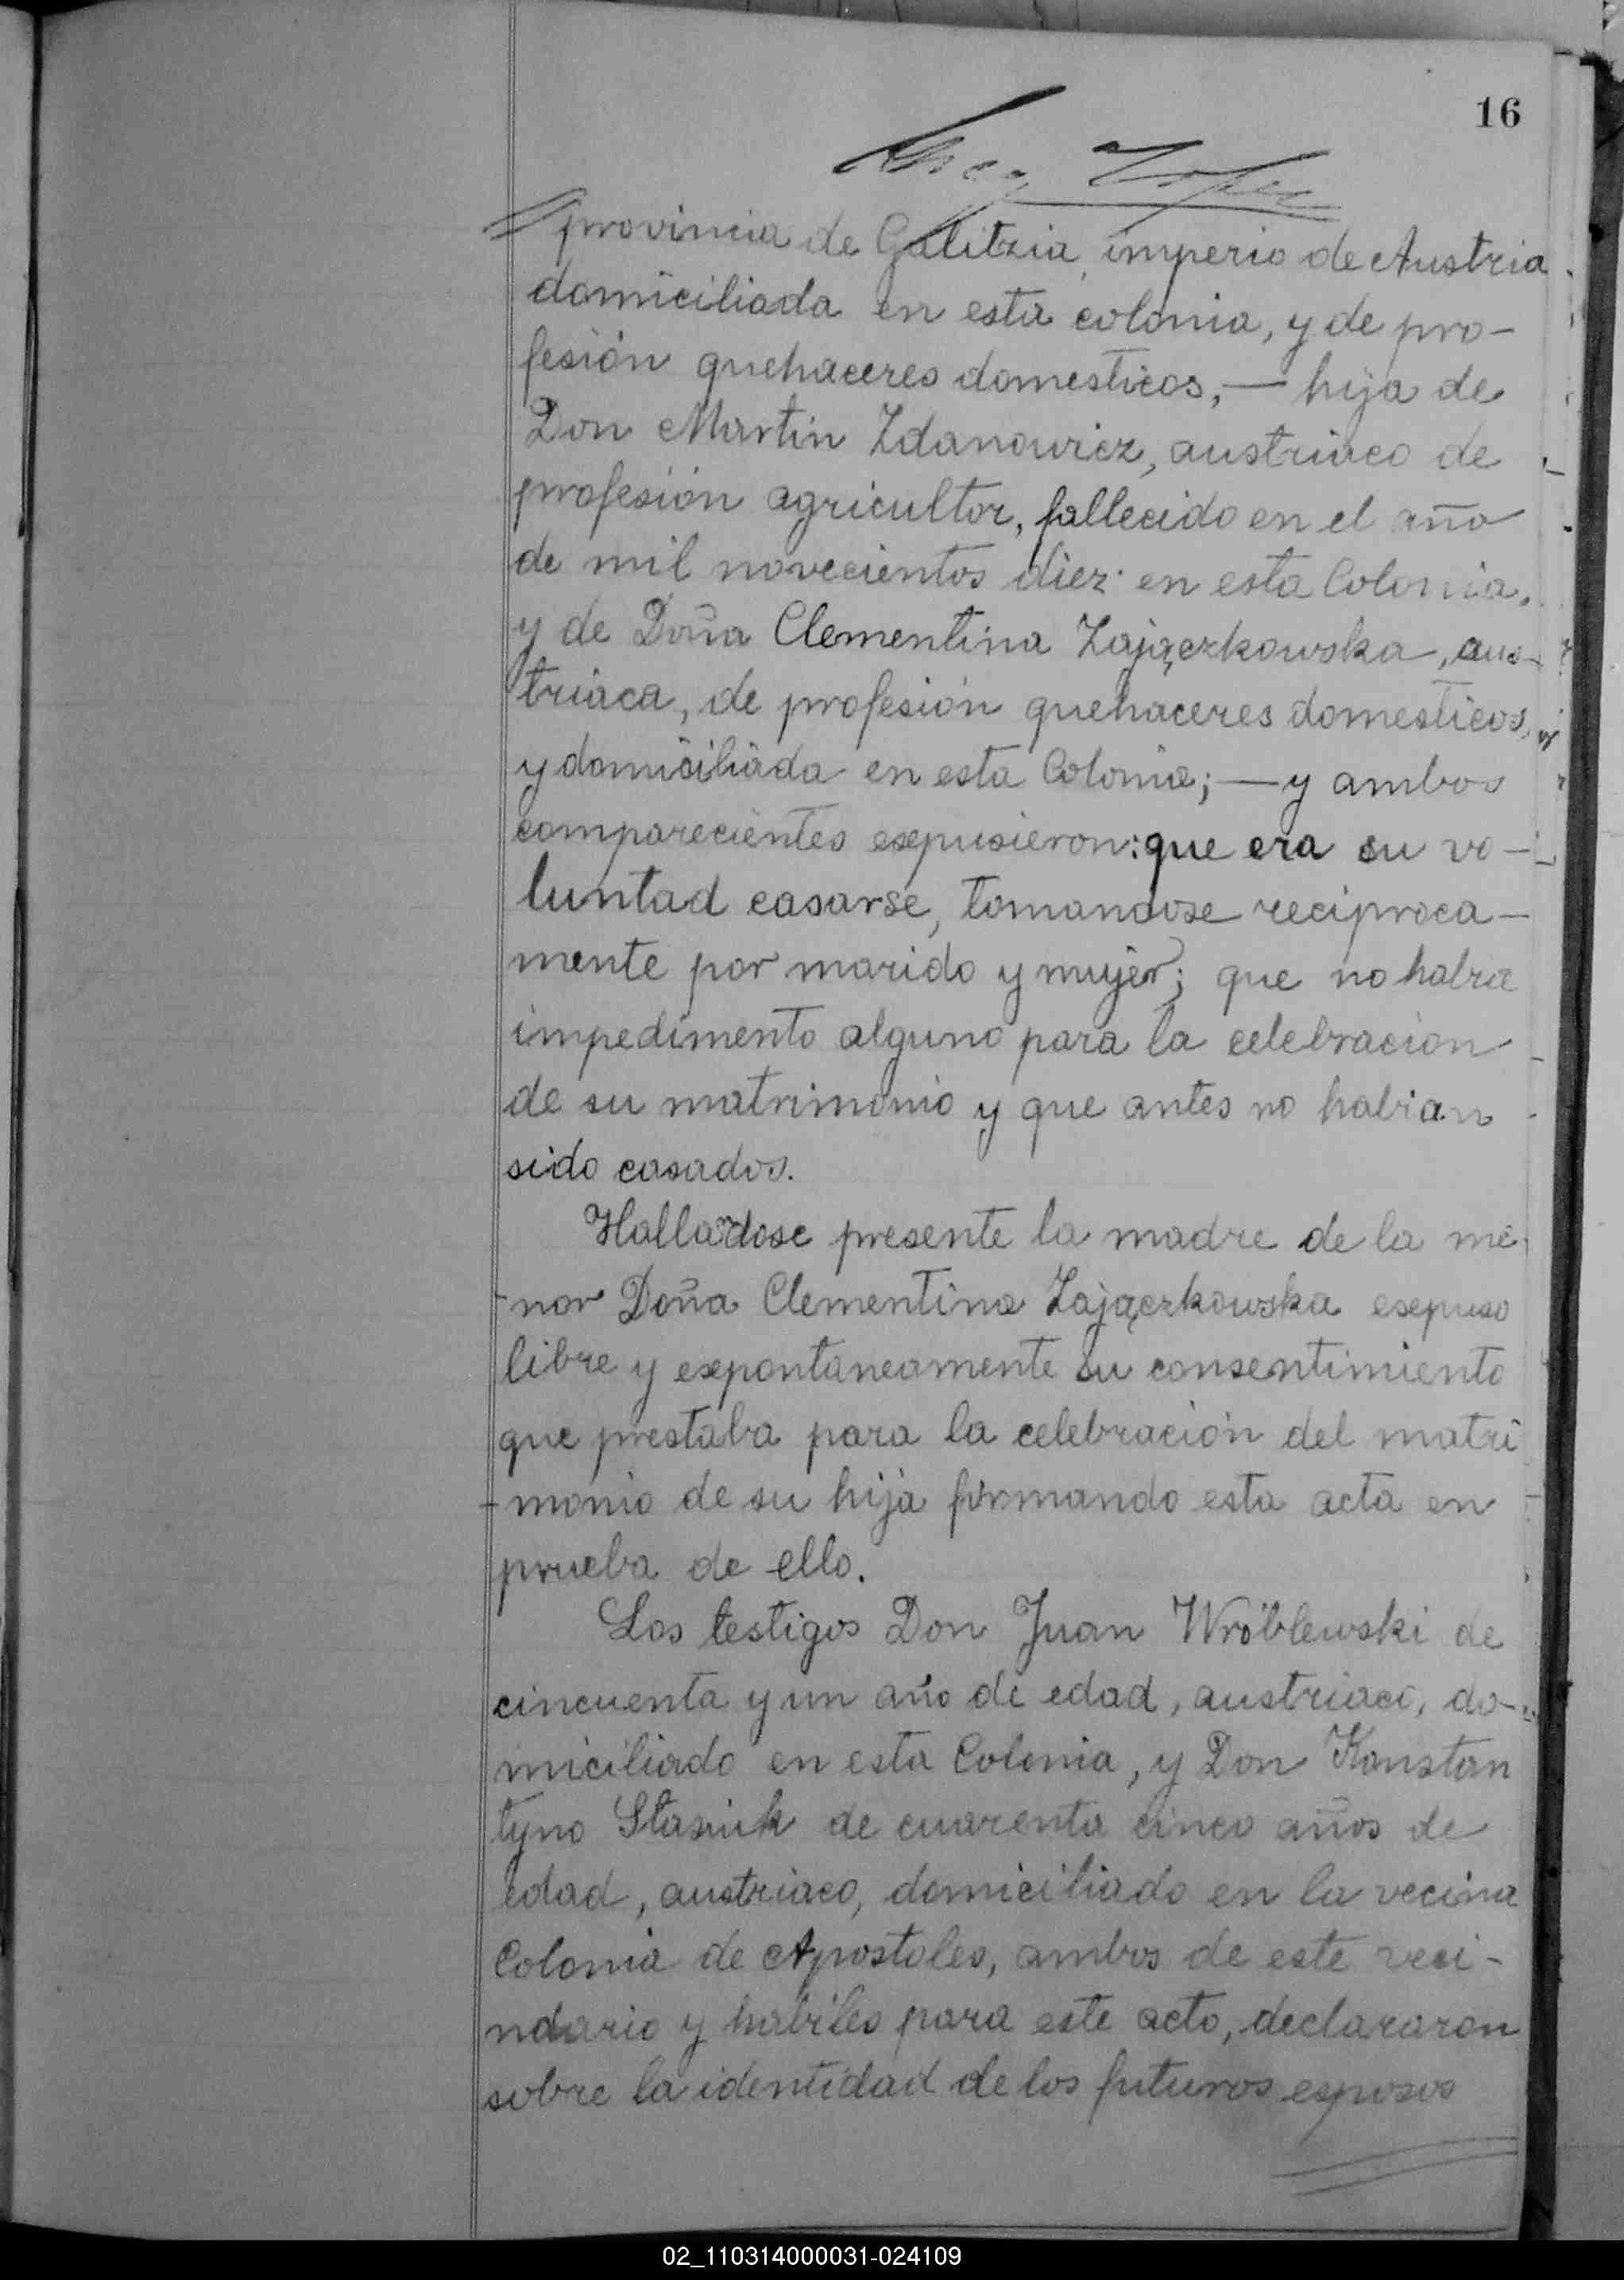 16
provincia de Galitzia, imperio de Austria
domiciliada en esta colonia, y de pro-
fesión quehaceres domesticos, — hija de
Don Martin Zdanowicz, austriaco de
profesión agricultor, fallecido en el año
de mil novecientos diez en esta Colonia,
y de Doña Clementina Zajączkowska, aus-
triaca, de profesión quehaceres domesticos,
y domiciliada en esta Colonia; — y ambos
comparecientes expusieron: que era su vo-
luntad casarse, tomandose reciproca-
mente por marido y mujer; que no habia
impedimento alguno para la celebracion
de su matrimonio y que antes no habian
sido casados.
Hallandose presente la madre de la me-
nor Doña Clementina Zajączkowska expuso
libre y expontaneamente su consentimiento
que prestaba para la celebración del matri
-monio de su hija firmando esta acta en
prueba de ello.
Los testigos Don Juan Wróblewski de
cincuenta y un año de edad, austriaco, do-
miciliado en esta Colonia, y Don Konstan
tyno Stasiuk de cuarenta cinco años de
edad, austriaco, domiciliado en la vecina
Colonia de Apostoles, ambos de este veci-
ndario y habiles para este acto, declararon
sobre la identidad de los futuros esposos
02_110314000031-024109